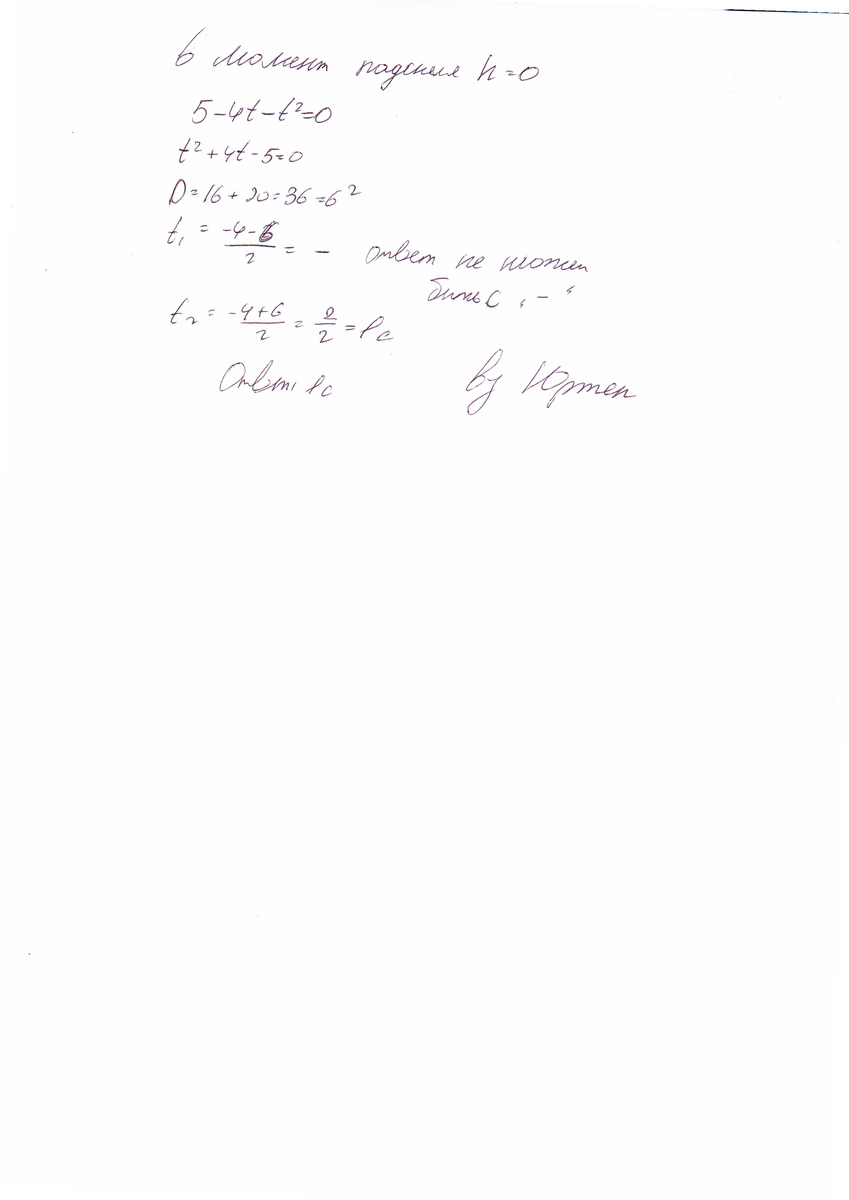 в момент падения h=0
5-4t-t²=0
t²+4t-5=0
D=16+20=36=6²
t₁ = -4-6/2 = - ответ не может
быть с „-“
t₂ = -4+6/2 = 2/2 = 1с
Ответ: 1с by Юртеп